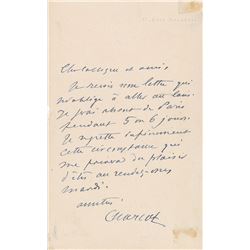 Cher collègue et ami
Je reçois une lettre qui
m'oblige à aller au
Je serai absent de Paris
pendant 5 ou 6 jours.
Je regrette infiniment
cette circonstance qui
me prive du plaisir
d'être au rendez-vous
mardi.
amitiés
Charcot